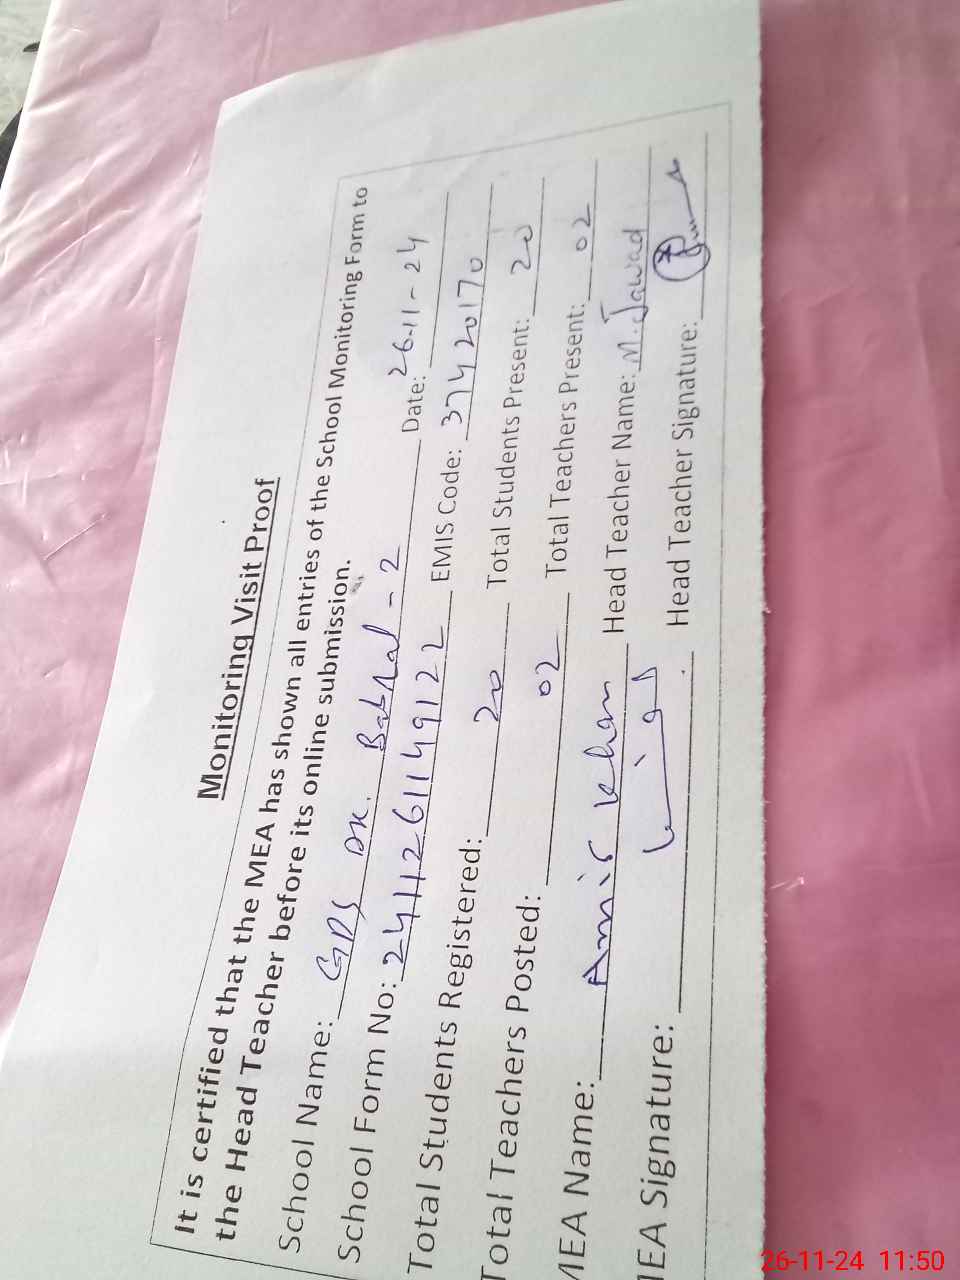 Monitoring Visit Proof
It is certified that the MEA has shown all entries of the School Monitoring Form to
the Head Teacher before its online submission.
School Name: GPS DK. Date: 26-11-24
School Form No: 2411261149122 EMIS Code: 37420170
Total Students Registered: 20 Total Students Present: 20
Total Teachers Posted: 02 Total Teachers Present: 02
MEA Name: Amir Khan Head Teacher Name: M. Jawad
MEA Signature: Head Teacher Signature:
26-11-24 11:50